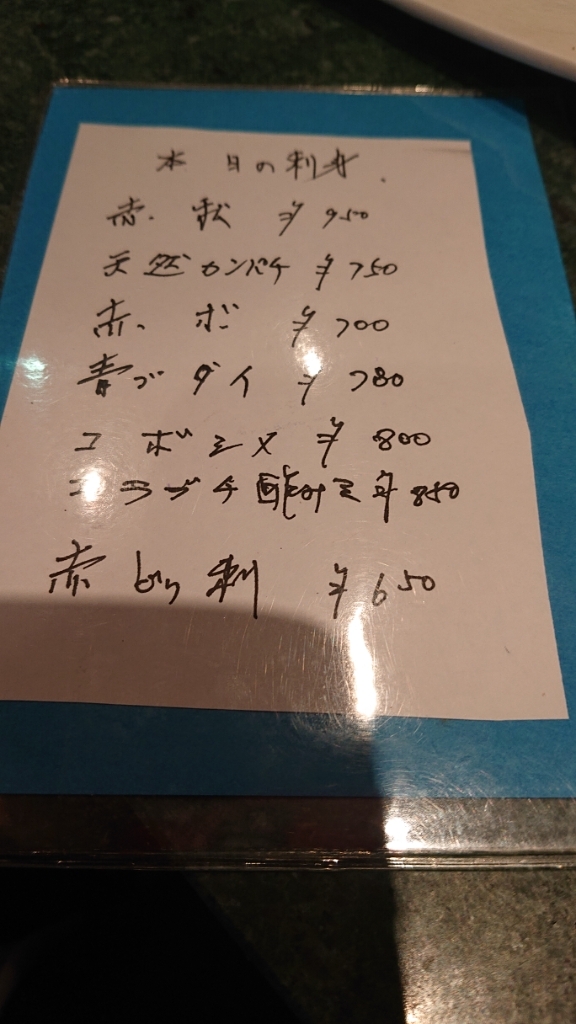 本日の刺身
赤松 ¥950
天然カンパチ ¥750
赤ボ ¥700
青ブダイ ¥780
コボシメ ¥800
ラブチ酢みそ ¥850
赤 刺 ¥650